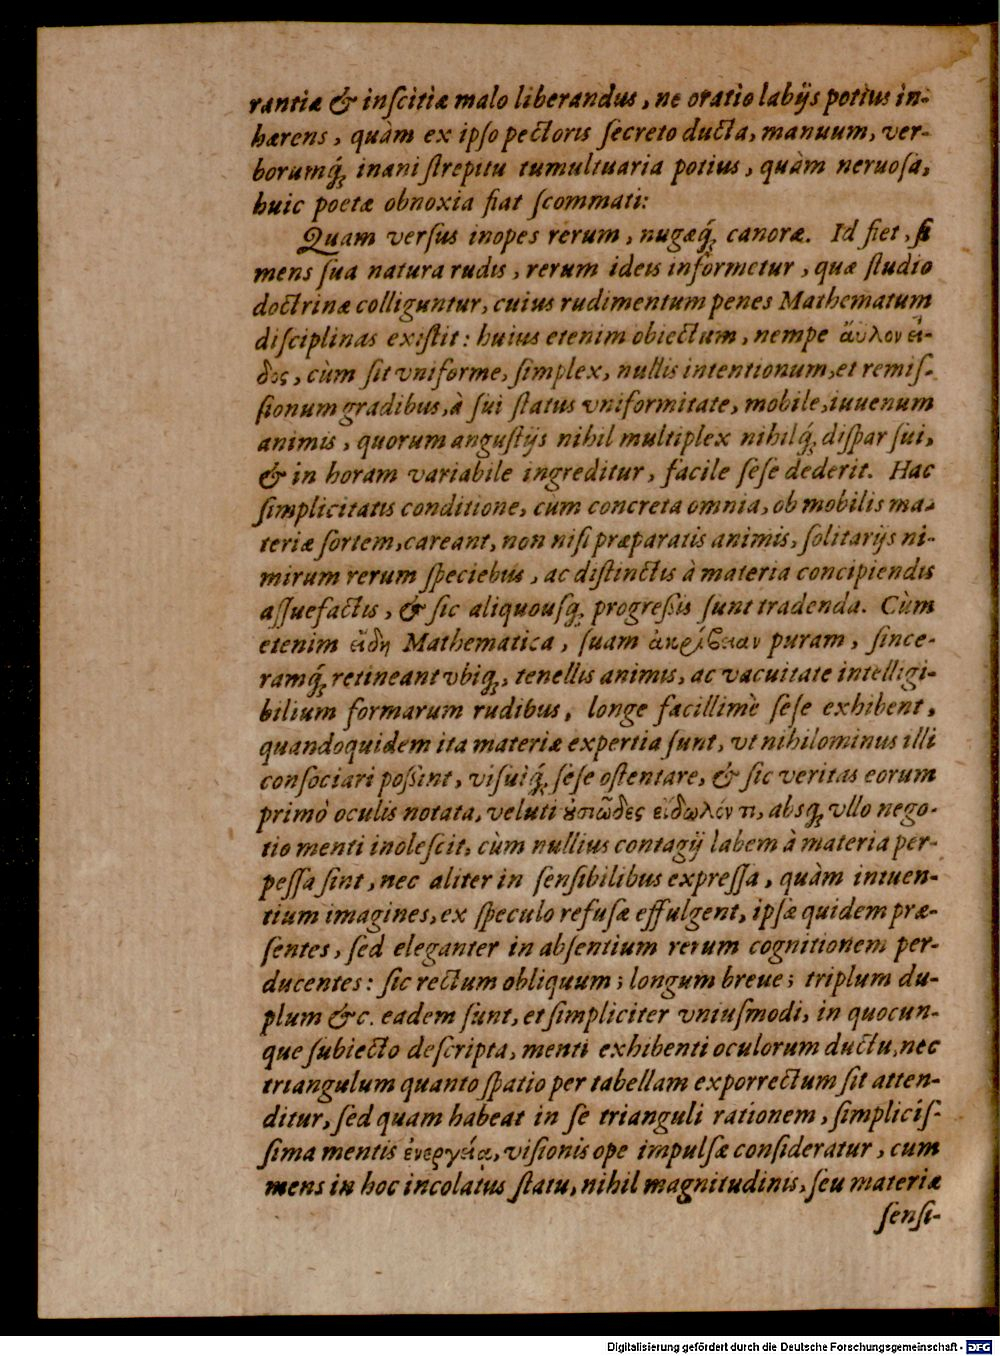 rantiæ & inſcitiæ malo liberandus, ne oratio labijs potius in-
hærens, quàm ex ipſo pectoris ſecreto ducta, manuum, ver-
borumq́; inani ſtrepitu tumultuaria potius, quàm neruoſa,
huic poetæ obnoxia fiat ſcommati:
Quam verſus inopes rerum, nugæq́; canoræ. Id fiet, ſi
mens ſua natura rudis, rerum ideis informetur, quæ ſtudio
doctrinæ colliguntur, cuius rudimentum penes Mathematum
diſciplinas exiſtit: huius etenim obiectum, nempe ἄϋλον εἶ-
δος, cùm ſit vniforme, ſimplex, nullis intentionum, et remiſ-
ſionum gradibus, à ſui ſtatus vniformitate, mobile, iuuenum
animis, quorum anguſtijs nihil multiplex nihilq́; diſpar ſui,
& in horam variabile ingreditur, facile ſeſe dederit. Hac
ſimplicitatis conditione, cum concreta omnia, ob mobilis ma-
teriæ ſortem, careant, non niſi præparatis animis, ſolitarijs ni-
mirum rerum ſpeciebus, ac diſtinctis à materia concipiendis
aſſuefactis, & ſic aliquouſq; progreßis ſunt tradenda. Cùm
etenim εἴδη Mathematica, ſuam ἀκρίβειαν puram, ſince-
ramq́; retineant vbiq;, tenellis animis, ac vacuitate intelligi-
bilium formarum rudibus, longe facillimè ſeſe exhibent,
quandoquidem ita materiæ expertia ſunt, vt nihilominus illi
conſociari poßint, viſuiq́; ſeſe oſtentare, & ſic veritas eorum
primò oculis notata, veluti ὑπῶδες εἰδωλόν τι, absq; vllo nego-
tio menti inoleſcit, cùm nullius contagij labem à materia per-
peſſa ſint, nec aliter in ſenſibilibus expreſſa, quàm intuen-
tium imagines, ex ſpeculo refuſæ effulgent, ipſæ quidem præ-
ſentes, ſed eleganter in abſentium rerum cognitionem per-
ducentes: ſic rectum obliquum; longum breue; triplum du-
plum &c. eadem ſunt, et ſimpliciter vniuſmodi, in quocun-
que ſubiecto deſcripta, menti exhibenti oculorum ductu, nec
triangulum quanto ſpatio per tabellam exporrectum ſit atten-
ditur, ſed quam habeat in ſe trianguli rationem, ſimpliciſ-
ſima mentis ἐνεργείᾳ, viſionis ope impulſæ conſideratur, cum
mens in hoc incolatus ſtatu, nihil magnitudinis, ſeu materiæ
ſenſi-
Digitalisierung gefördert durch die Deutsche Forschungsgemeinschaft - DFG